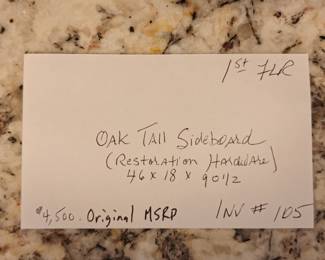 1st FLR
OAK TAll Sideboard
(Restoration Hardware)
46 x 18 x 90 1/2
$4,500. Original MSRP
INV # 105